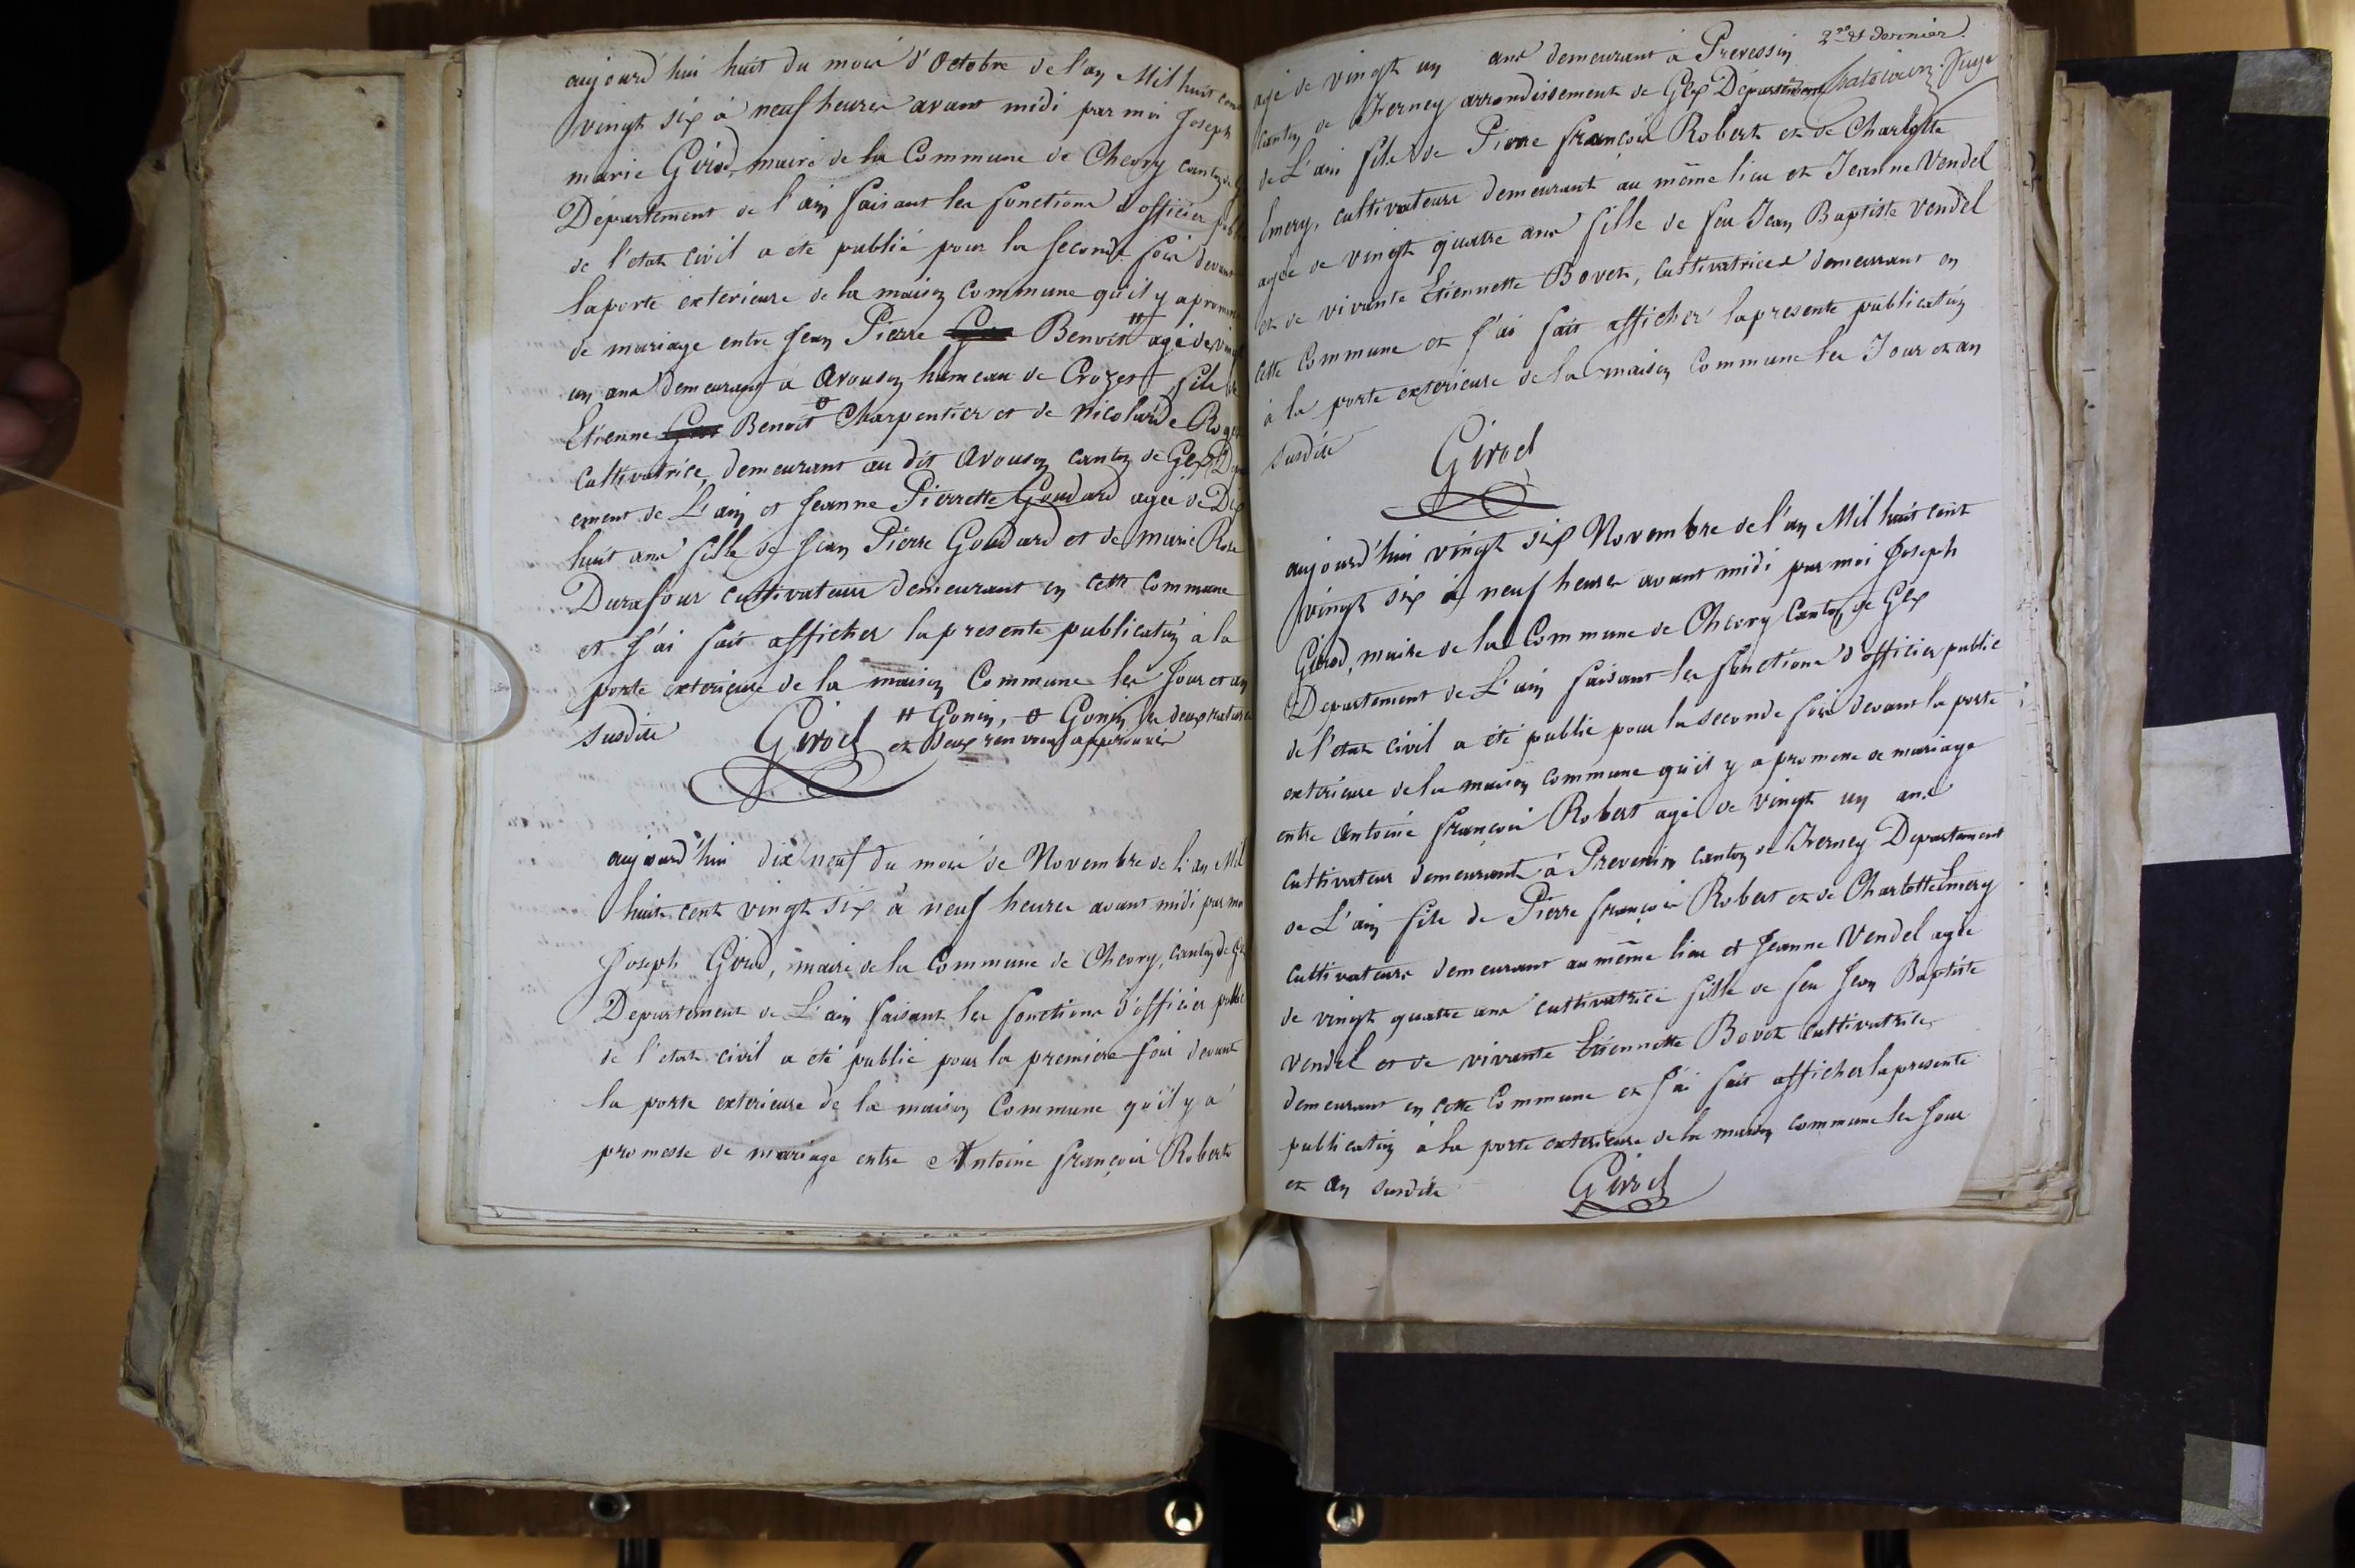 aujourd'hui huit du mois d'Octobre de l'an Mil huit cent
vingt six à neuf heures avant midi par moi Joseph
marie Girod, maire de la Commune de Chevry canton de
Département de l'ain faisant les fonctions d'officier public
de l'etat civil a eté publié pour la seconde fois devant
la porte exterieure de la maison Commune qu'il y a promesse
de mariage entre Jean Pierre Benoit # agé de vingt
un ans demeurant à Avouson hameau de Crozet fils de
Etienne Benoit ⌀ Charpentier et de Nicolarde Roget
Cultivatrice, demeurant au dit Avouson canton de Gex Dépa
ement de L'ain et Jeanne Pierrette Goudard agée de Dix
huit ans fille de Jean Pierre Goudard et de marie Rose
Durafour cultivateurs demeurant en cette commune
et J'ai fait afficher la presente publication à la
porte exterieure de la maison Commune les Jour et an
susdits Girod # Gonin, ⌀ Gonin les deux ratures
et deux renvois approuvés
aujourd'hui dix neuf du mois de Novembre de l'an Mil
huit cent vingt six à neuf heures avant midi par moi
Joseph Girod, maire de la Commune de Chevry, canton de Gex
Departement de L'ain faisant les fonctions d'officier public
de l'etat civil a eté publié pour la premiere fois devant
la porte exterieure de la maison Commune qu'il y a
promesse de mariage entre Antoine françois Robert
2me et dernier.
agé de vingt un ans demeurant à Prevessin
Juge
canton de Ferney arrondissement de Gex Département
de L'ain fils de Pierre françois Robert et de Charlotte
Emery, cultivateurs demeurant au même lieu et Jeanne Vendel
agée de vingt quatre ans fille de feu Jean Baptiste Vendel
et de vivante Etiennette Bovet, Cultivatrices demeurant en
cette Commune et J'ai fait afficher la presente publication
à la porte exterieure de la maison Commune les Jour et an
susdits Girod
aujourd'hui vingt six Novembre de l'an Mil huit cent
vingt six à neuf heures avant midi par moi Joseph
Girod, maire de la Commune de Chevry Canton de Gex
Departement de L'ain faisant les fonctions d'officier public
de l'etat civil a eté publié pour la seconde fois devant la porte
exterieure de la maison commune qu'il y a promesse de mariage
entre Antoine françois Robert agé de vingt un ans
cultivateur demeurant à Prevessin canton de Ferney Departement
de L'ain fils de Pierre françois Robert et de Charlotte Emery
cultivateurs demeurant au même lieu et Jeanne Vendel agée
de vingt quatre ans cultivatrice fille de feu Jean Baptiste
Vendel et de vivante Etiennette Bovet cultivatrice
demeurant en cette Commune et J'ai fait afficher la presente
publication à la porte exterieure de la maison commune les Jour
et an susdits Girod